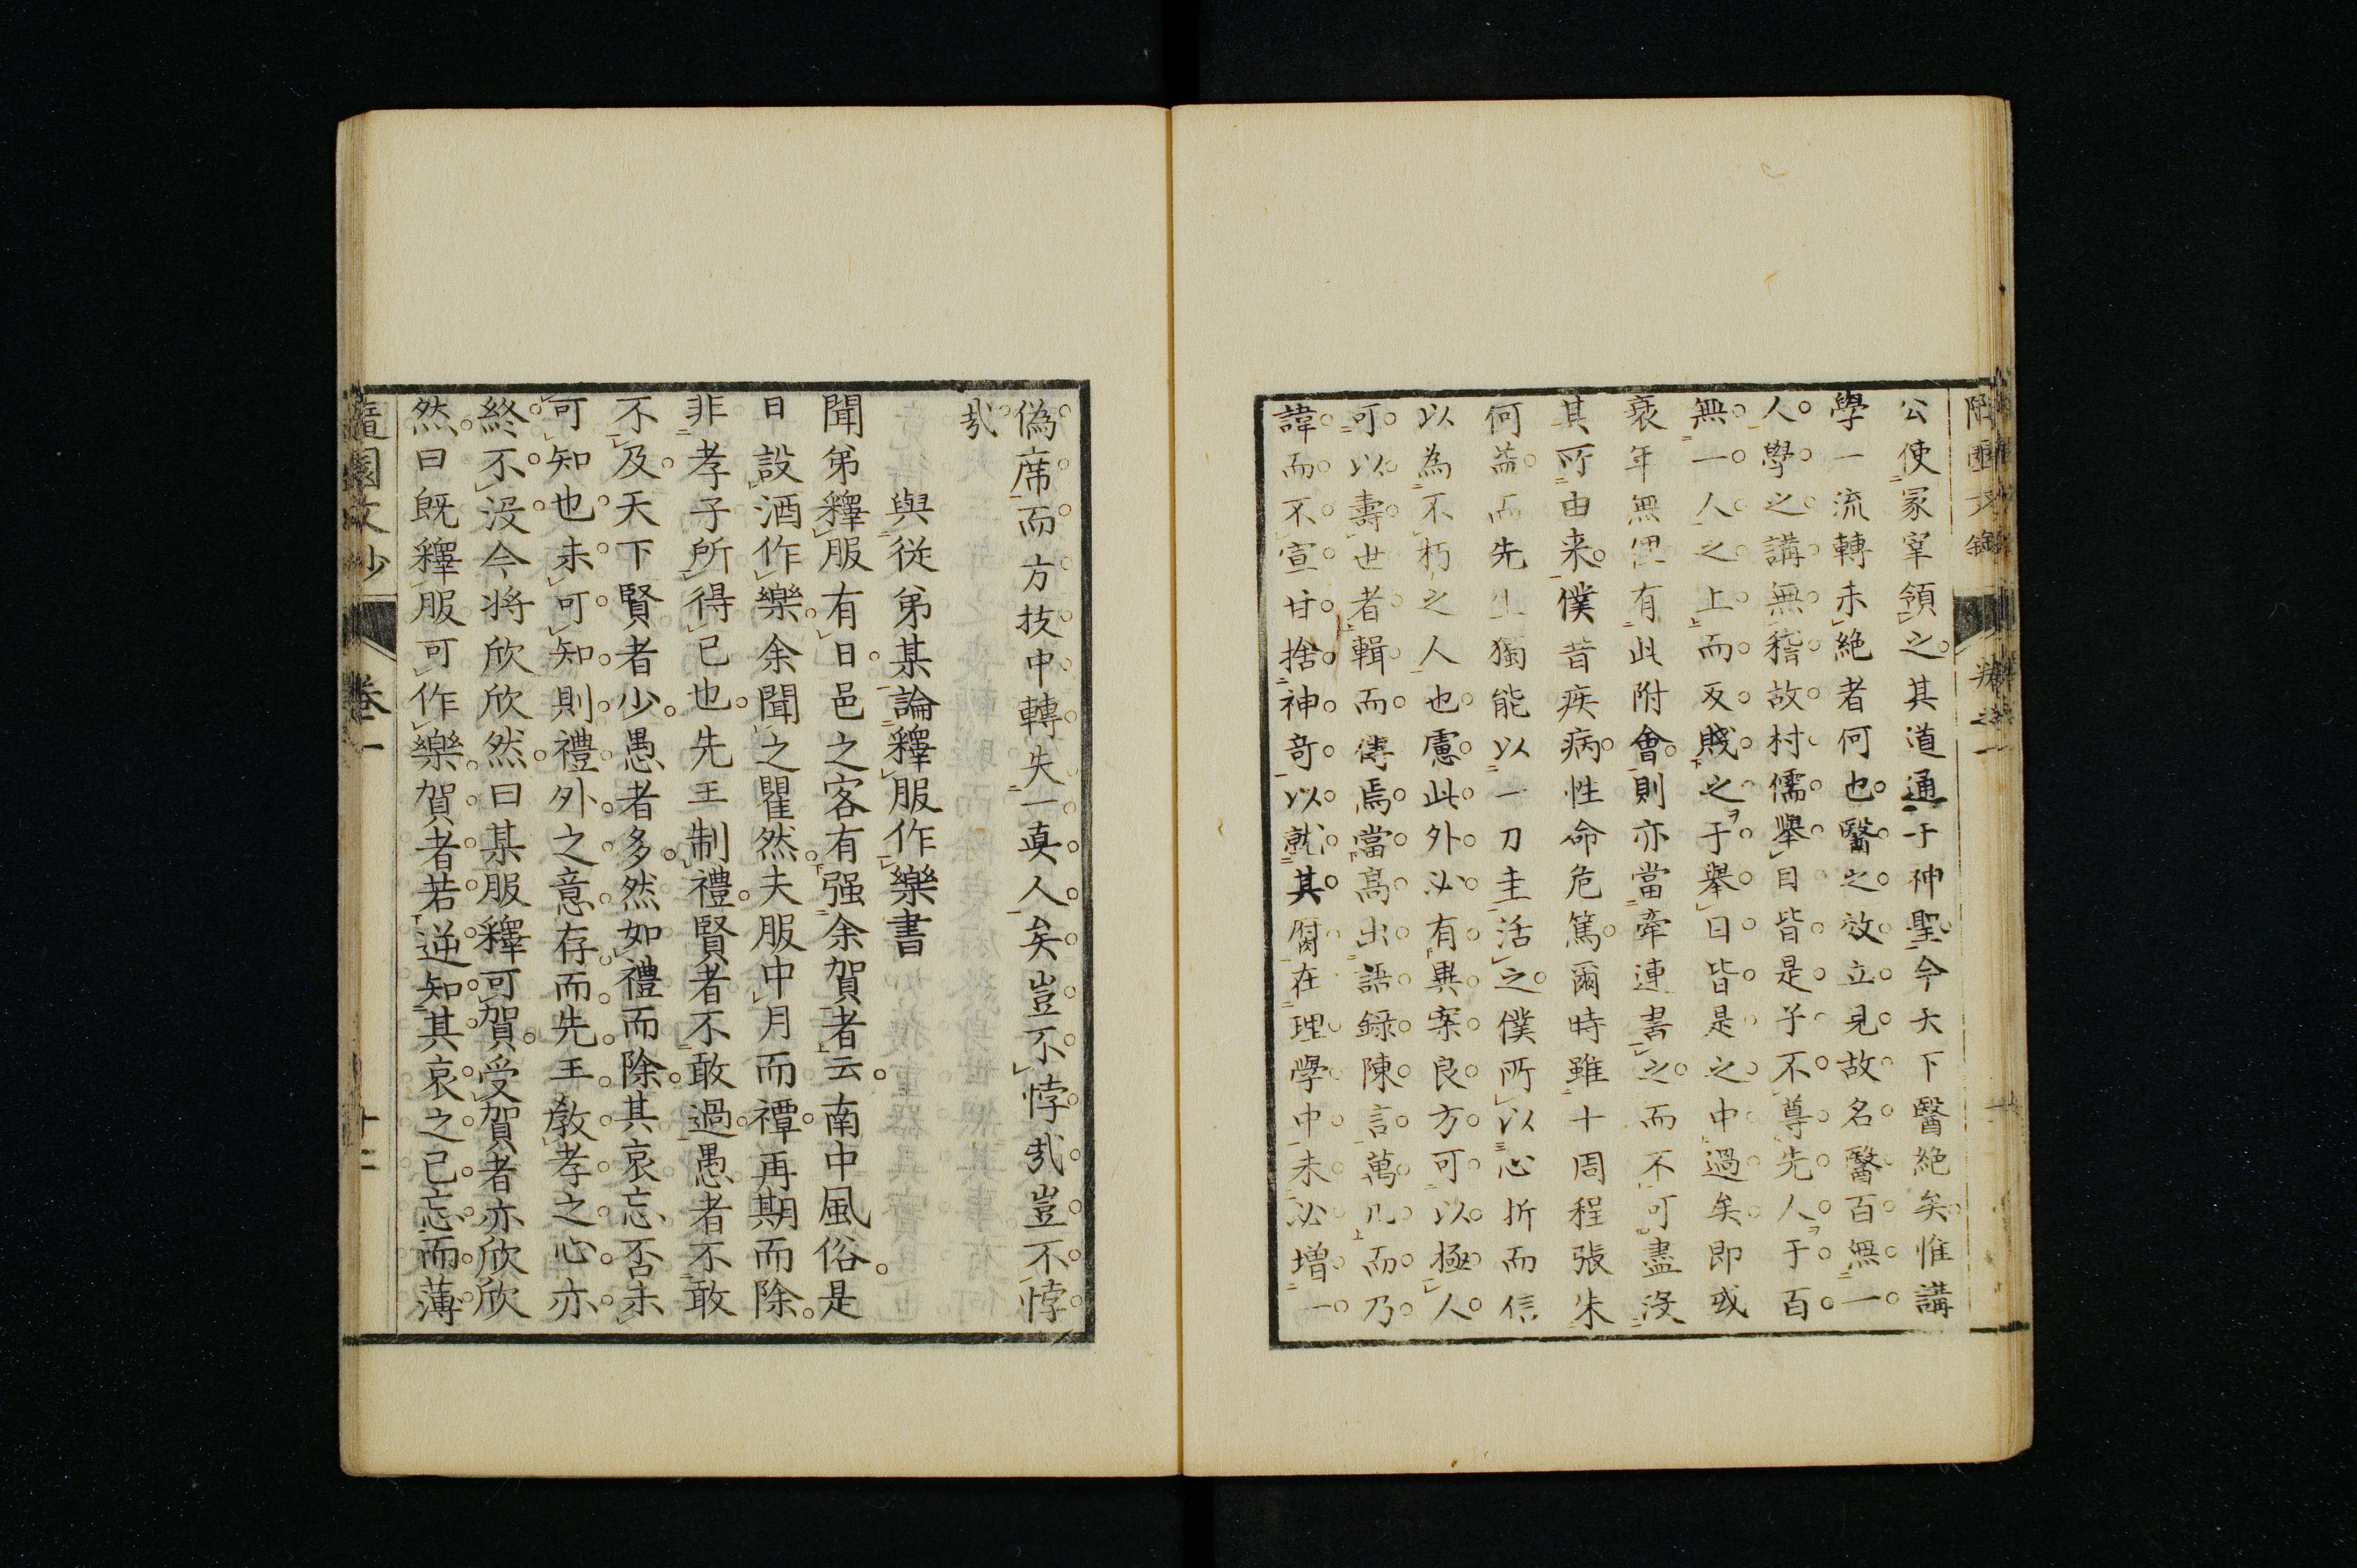 公使冢宰領之其道通于神聖今天下醫絶矣惟講
學一流轉未絶者何也醫之效立見故名醫百無一
人學之講無稽故村儒舉目皆是子不尊先人ヲ于百
無一人之上而反賤之ヲ于舉目皆是之中過矣即或
衰年無俚有此附會則亦當牽連書之而不可盡没
其所由来僕昔疾病性命危篤爾時雖十周程張朱
何益而先生獨能以一刀圭活之僕所以心折而信
以為不朽之人也慮此外必有異案良方可以極人
可以壽世者輯而傳焉當高出語録陳言萬凡而乃
諱而不宣甘捨神奇以就其腐在理學中未必增一
偽席而方技中轉失一真人矣豈不悖哉豈不悖
哉
與従弟某論釋服作樂書
聞弟釋服有日邑之客有强余賀者云南中風俗是
日設酒作樂余聞之瞿然夫服中月而禫再期而除
非孝子所得已也先王制禮賢者不敢過愚者不敢
不及天下賢者少愚者多然如禮而除其哀忘否未
可知也未可知則禮外之意存而先王教孝之心亦
終不没今将欣欣然曰某服釋可賀受賀者亦欣欣
然曰既釋服可作樂賀者若逆知其哀之已忘而薄
隨園文抄 巻一 十二